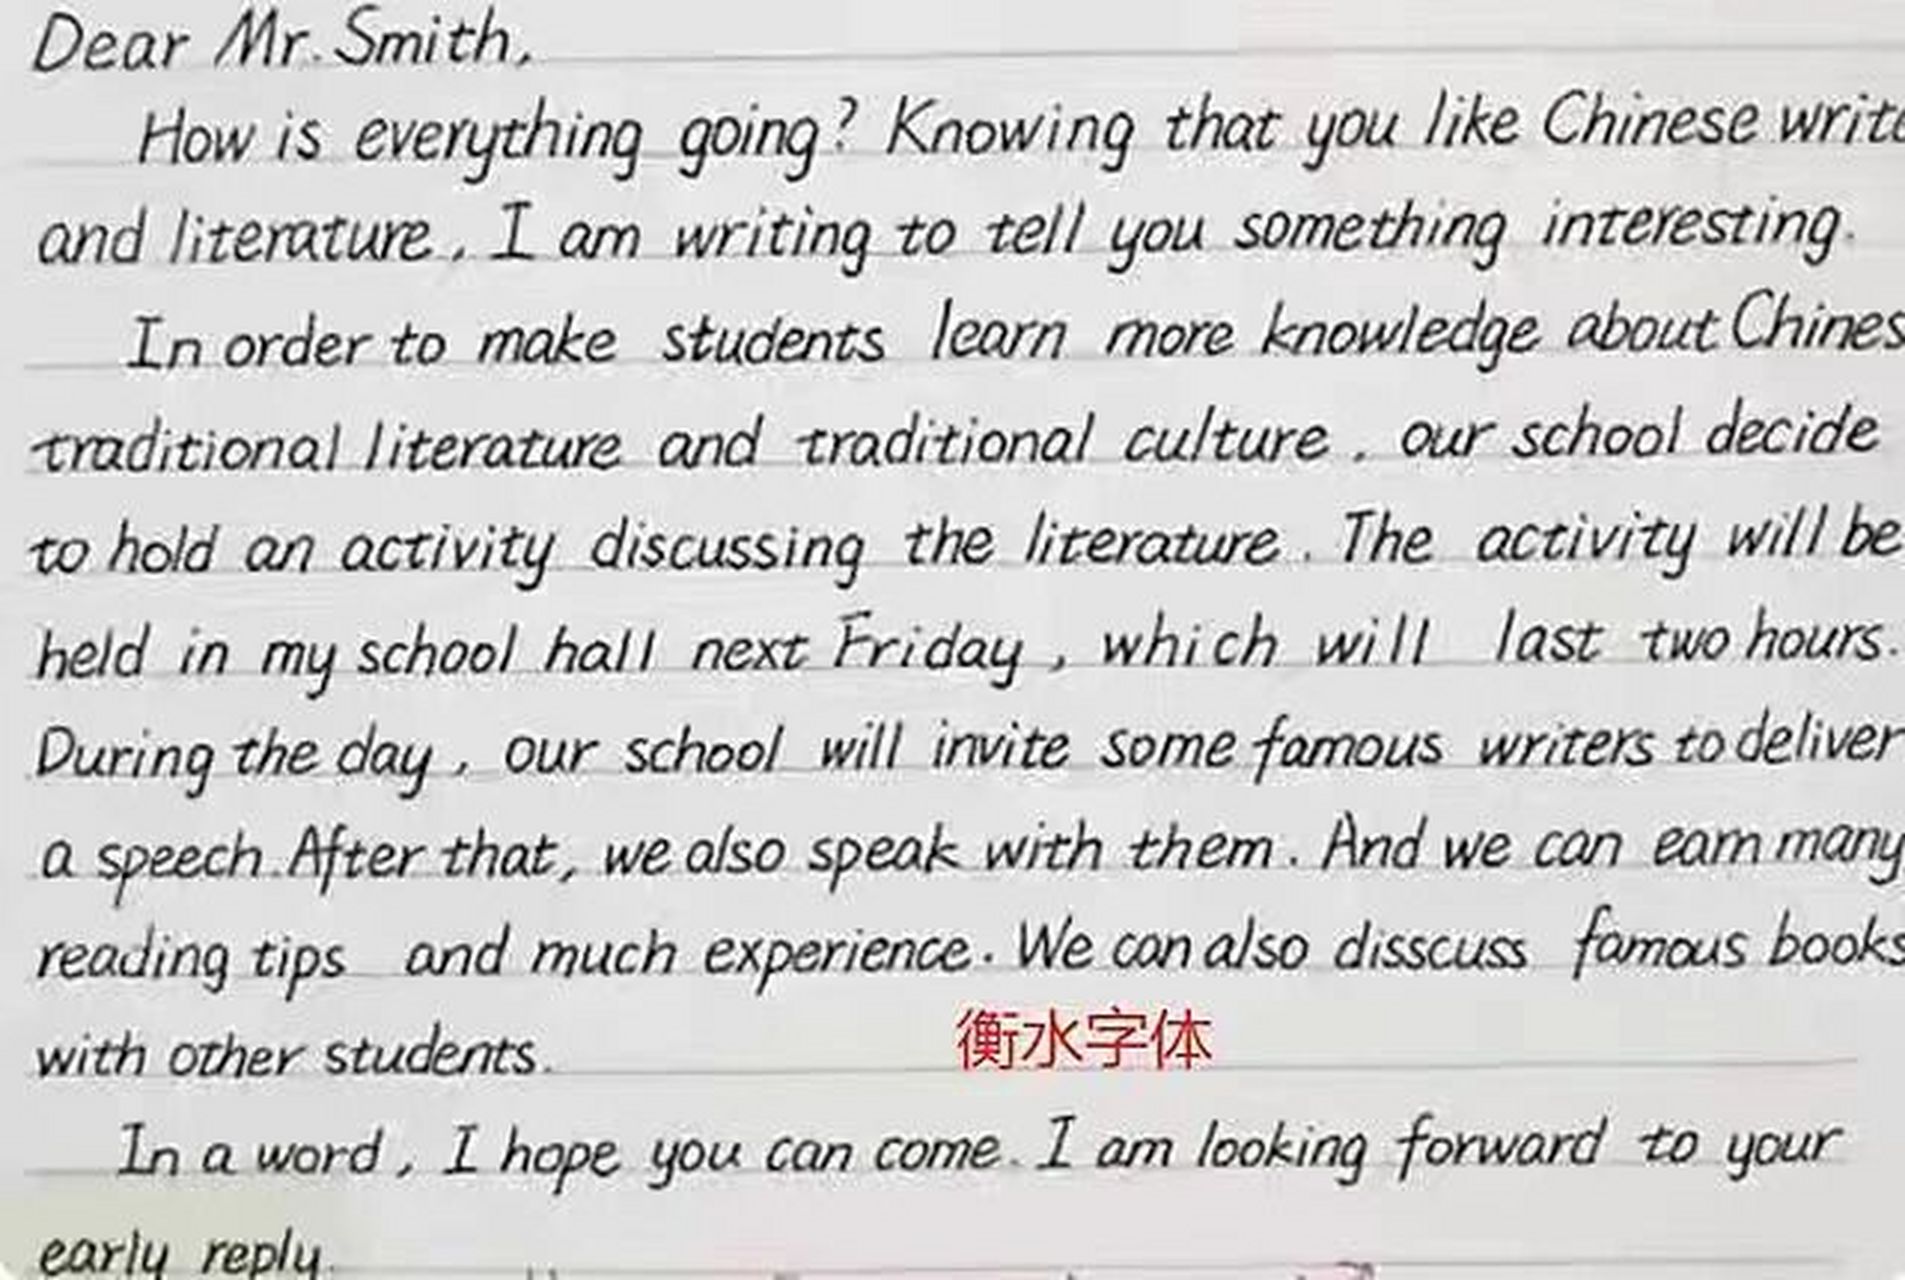 Dear Mr. Smith,
How is everything going? Knowing that you like Chinese write
and literature, I am writing to tell you something interesting.
In order to make students learn more knowledge about Chines
traditional literature and traditional culture, our school decide
to hold an activity discussing the literature. The activity will be
held in my school hall next Friday, which will last two hours.
During the day, our school will invite some famous writers to deliver
a speech. After that, we also speak with them. And we can earn many
reading tips and much experience. We can also disscuss famous books
with other students.
衡水字体
In a word, I hope you can come. I am looking forward to your
early reply.